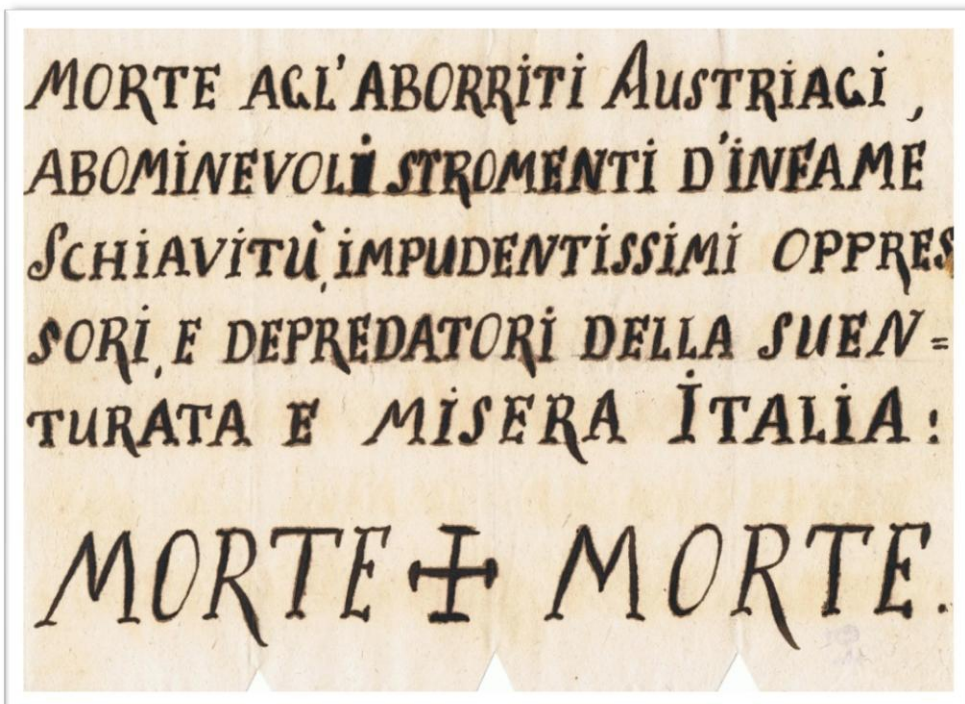 MORTE AGL'ABORRITI AUSTRIACI,
ABOMINEVOLI STROMENTI D'INFAME
SCHIAVITÙ, IMPUDENTISSIMI OPPRES
SORI, E DEPREDATORI DELLA SUEN=
TURATA E MISERA ITALIA!
MORTE + MORTE.